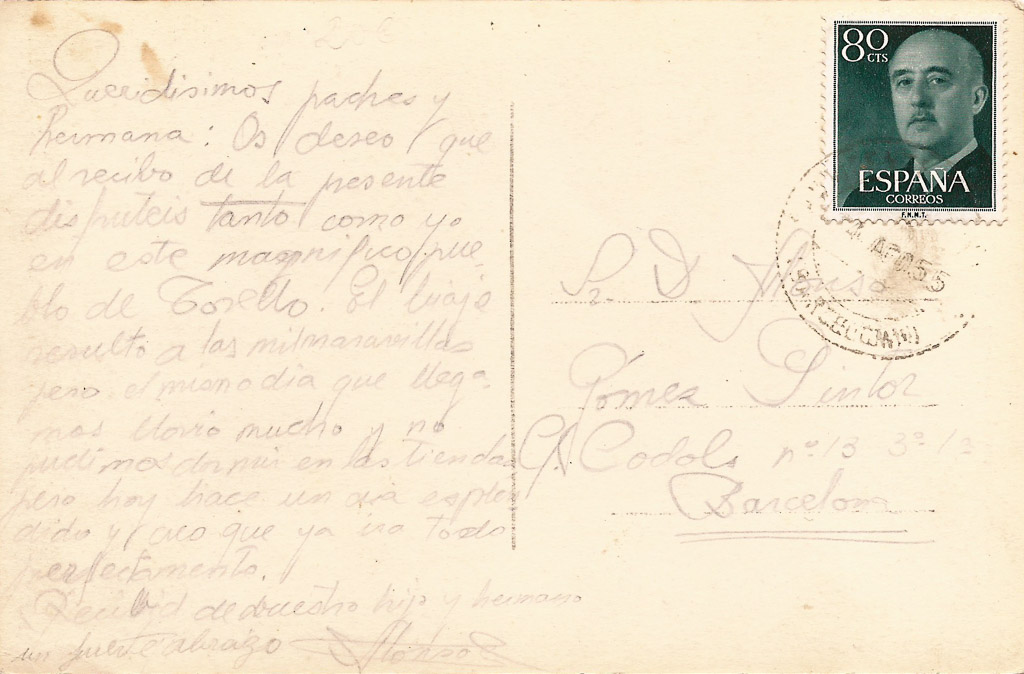 Queridisimos padres y
hermana: Os deseo que
al recibo de la presente
disfruteis tanto como yo
en este magnifico pue
blo de Torello. El viaje
resulto a las mil maravillas
pero el mismo dia que llega
mos llovio mucho y no
pudimos dormir en las tiendas
pero hoy hace un dia esplen
dido y creo que ya ira todo
perfectamente.
Recibid de vuestro hijo y hermano
un fuerte abrazo Alonso
80 CTS
ESPAÑA
CORREOS
F.N.M.T.
AGO 55
Sr. D. Alonso
Gomez Sintor
C/ Codols nº 13 3º 1ª
Barcelona